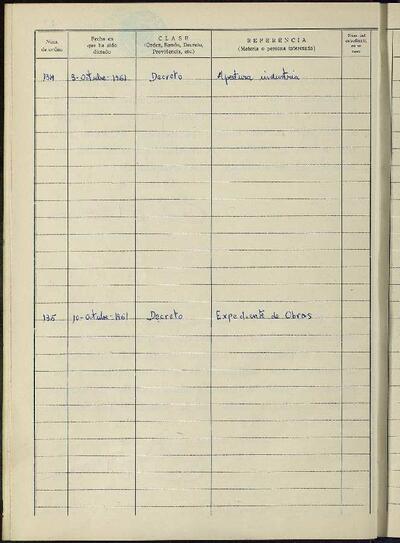 Núm. de orden
Fecha en que ha sido dictado
CLASE
(Orden, Bando, Decreto, Providencia, etc.)
REFERENCIA
(Materia o persona interesada)
134 3-Octubre-1961 Decreto Apertura industria
135 10-Octubre-1961 Decreto Expediente de Obras